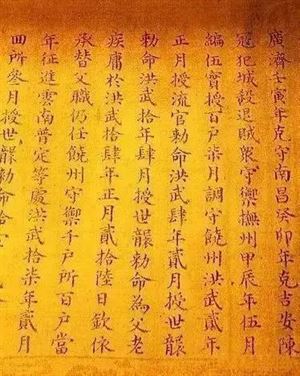 廣濟壬寅年克守南昌癸卯年克吉安陳
冦犯城殺退賊衆守禦撫州甲辰年伍月
編伍實授百戶柒月調守饒州洪武貳年
正月授流官勅命洪武肆年貳月授世襲
勅命洪武拾肆年肆月授世襲勅命為父老
疾庸於洪武拾肆年正月貳拾陸日欽依
承替父職仍任饒州守禦千戶所百戶當
年征進雲南普定等處洪武拾柒年貳月
回所叁月授世襲勅命拾